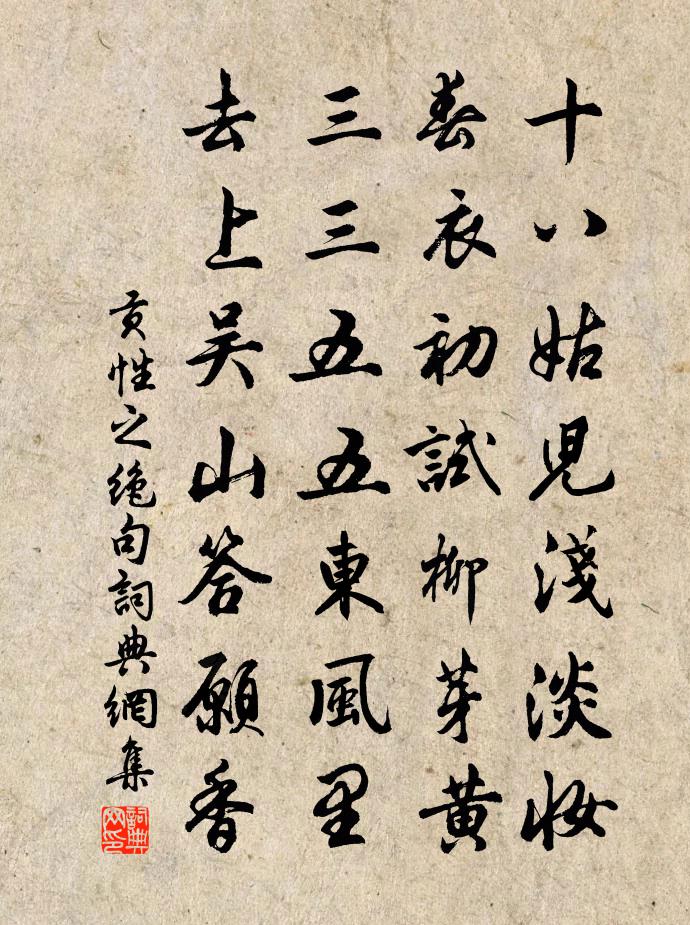 十八姑兒淺淡妝
春衣初試柳芽黃
三三五五東風里
去上吴山答願香
貢性之絕句詞典網集
詞典網印